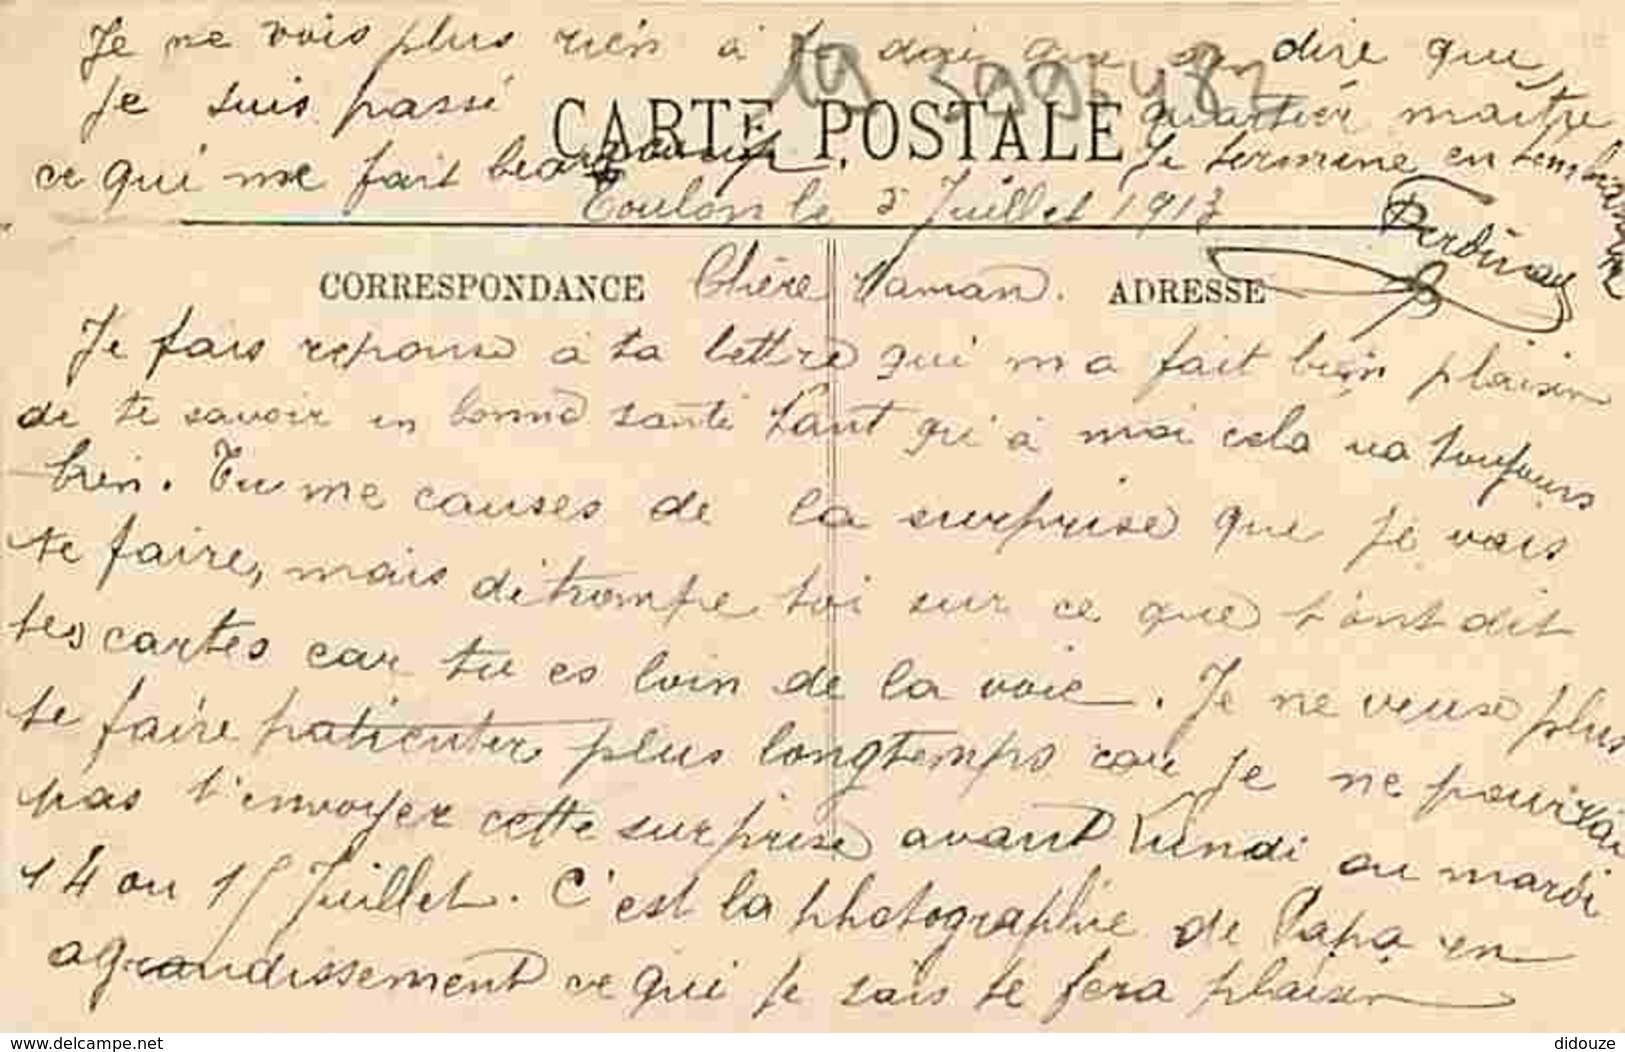 Je ne vois plus rien à te dire que
Je suis passé quartier maître
ce qui me fait beaucoup. Je termine en t'embrassant
Ferdinand
CARTE POSTALE
Toulon le Juillet 1913
CORRESPONDANCE
ADRESSE
Chère Maman.
Je fais reponse à ta lettre qui m a fait bien plaisir
de te savoir en bonne santé Tant qu'à moi cela va toujours
bien. Tu me causes de la surprise que je vais
te faire, mais détrompe toi sur ce que t'ont dit
tes cartes car tu es loin de la voie. Je ne veux plus
te faire patienter plus longtemps car je ne pourrai
pas t'envoyer cette surprise avant Lundi ou mardi
14 ou 15 Juillet. C'est la photographie de Papa en
agrandissement ce qui je sais te fera plaisir
www.delcampe.net
didouze